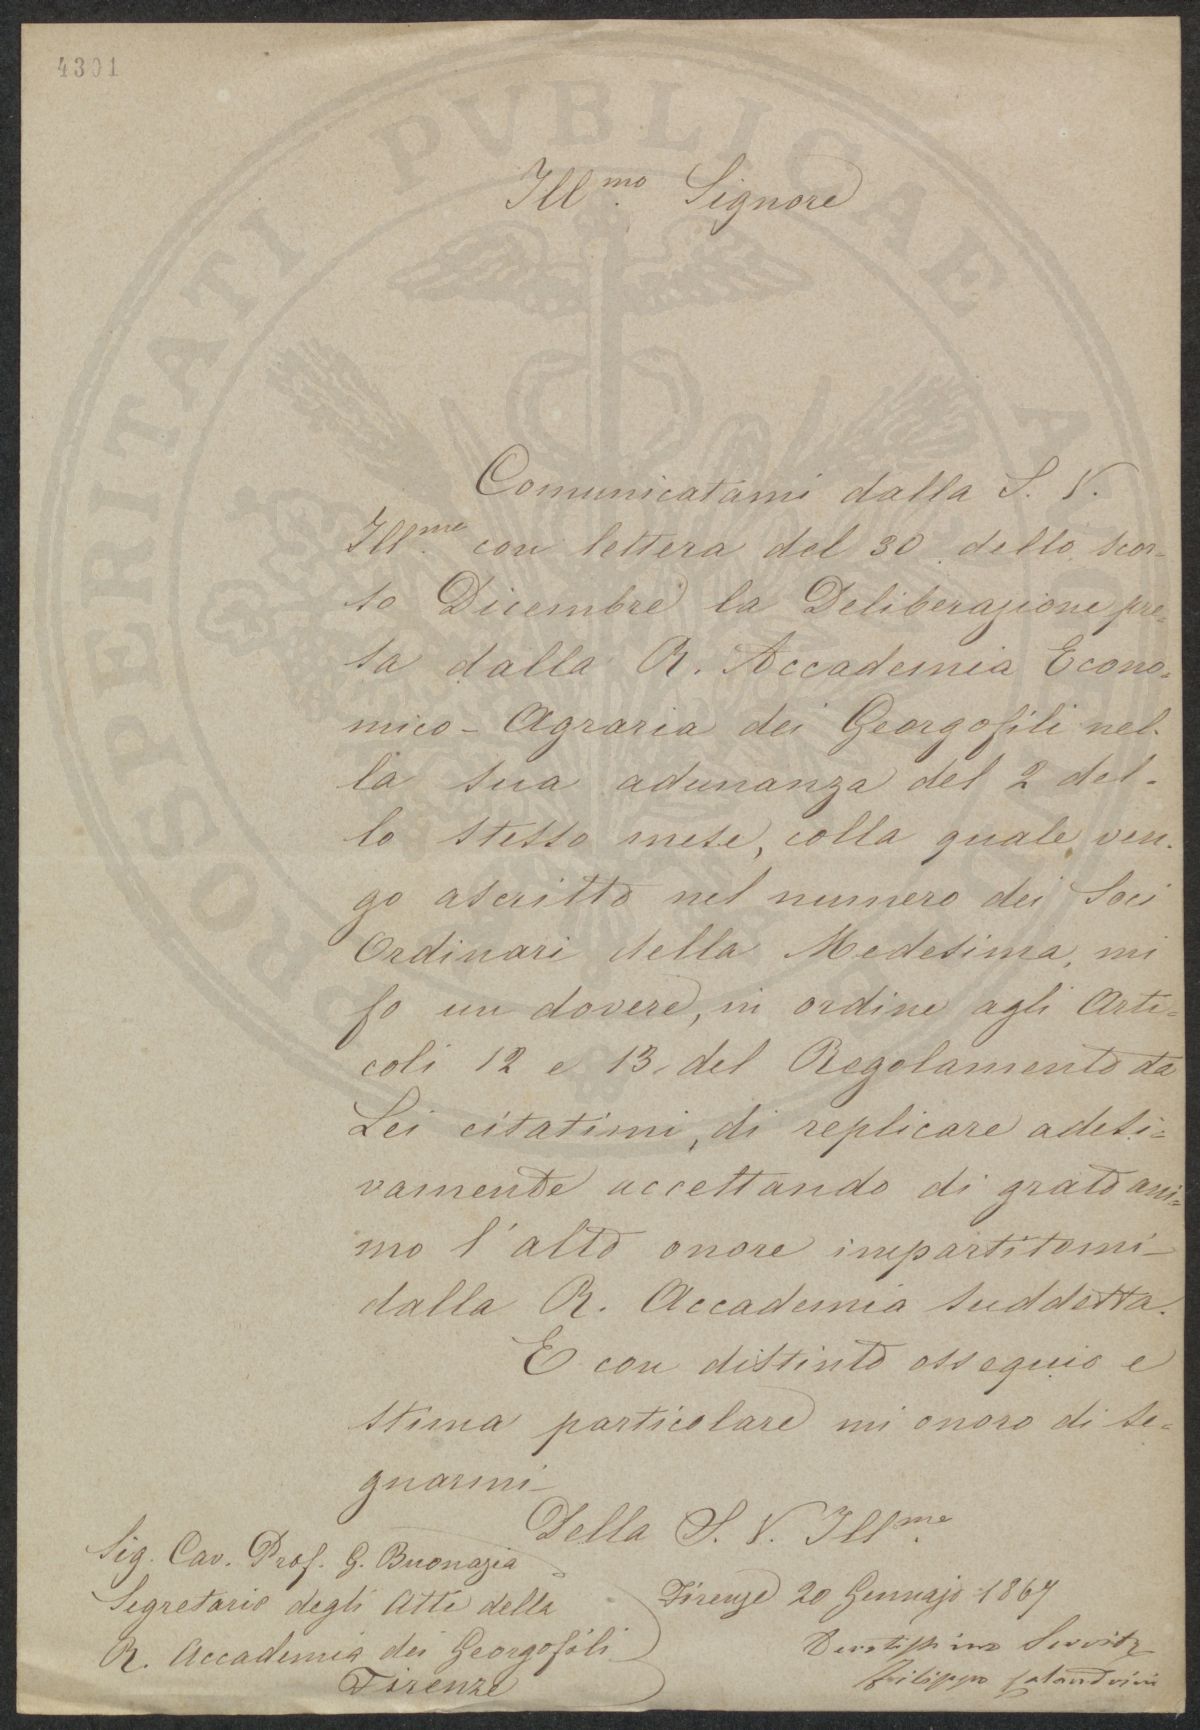 4301
Ill.mo Signore
Comunicatami dalla S. V.
Ill.ma con lettera del 30 dello scor-
so Dicembre la Deliberazione pre-
sa dalla R. Accademia Econo-
mico-Agraria dei Georgofili nel-
la sua adunanza del 2 del-
lo stesso mese, colla quale ven-
go ascritto nel numero dei Soci
Ordinari della Medesima, mi
fo un dovere, in ordine agli Arti-
coli 12 e 13 del Regolamento da
Lei citatimi, di replicare adesi-
vamente accettando di grato ani-
mo l'alto onore impartitomi
dalla R. Accademia suddetta.
E con distinto ossequio e
stima particolare mi onoro di se-
gnarmi
Della S. V. Ill.ma
Sig. Cav. Prof. G. Buonazia
Segretario degli Atti della
R. Accademia dei Georgofili
Firenze
Firenze 20 Gennajo 1867
Devotissimo Servitr
Filippo Calandrini
PROSPERITATI PVBLICAE